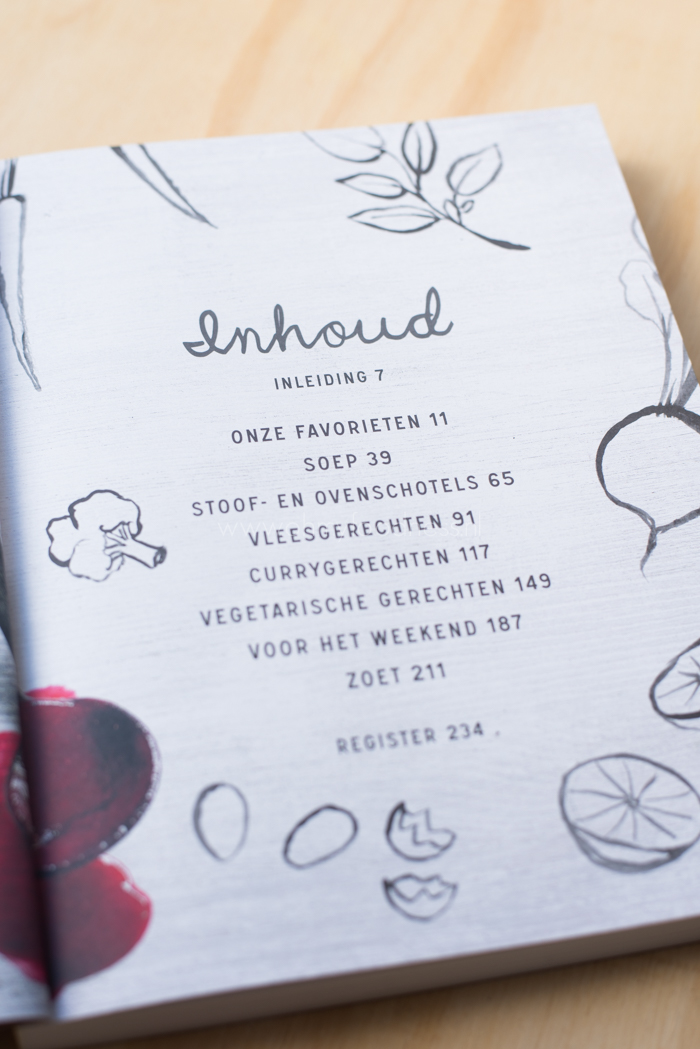 Inhoud
INLEIDING 7
ONZE FAVORIETEN 11
SOEP 39
STOOF- EN OVENSCHOTELS 65
VLEESGERECHTEN 91
CURRYGERECHTEN 117
VEGETARISCHE GERECHTEN 149
VOOR HET WEEKEND 187
ZOET 211
REGISTER 234